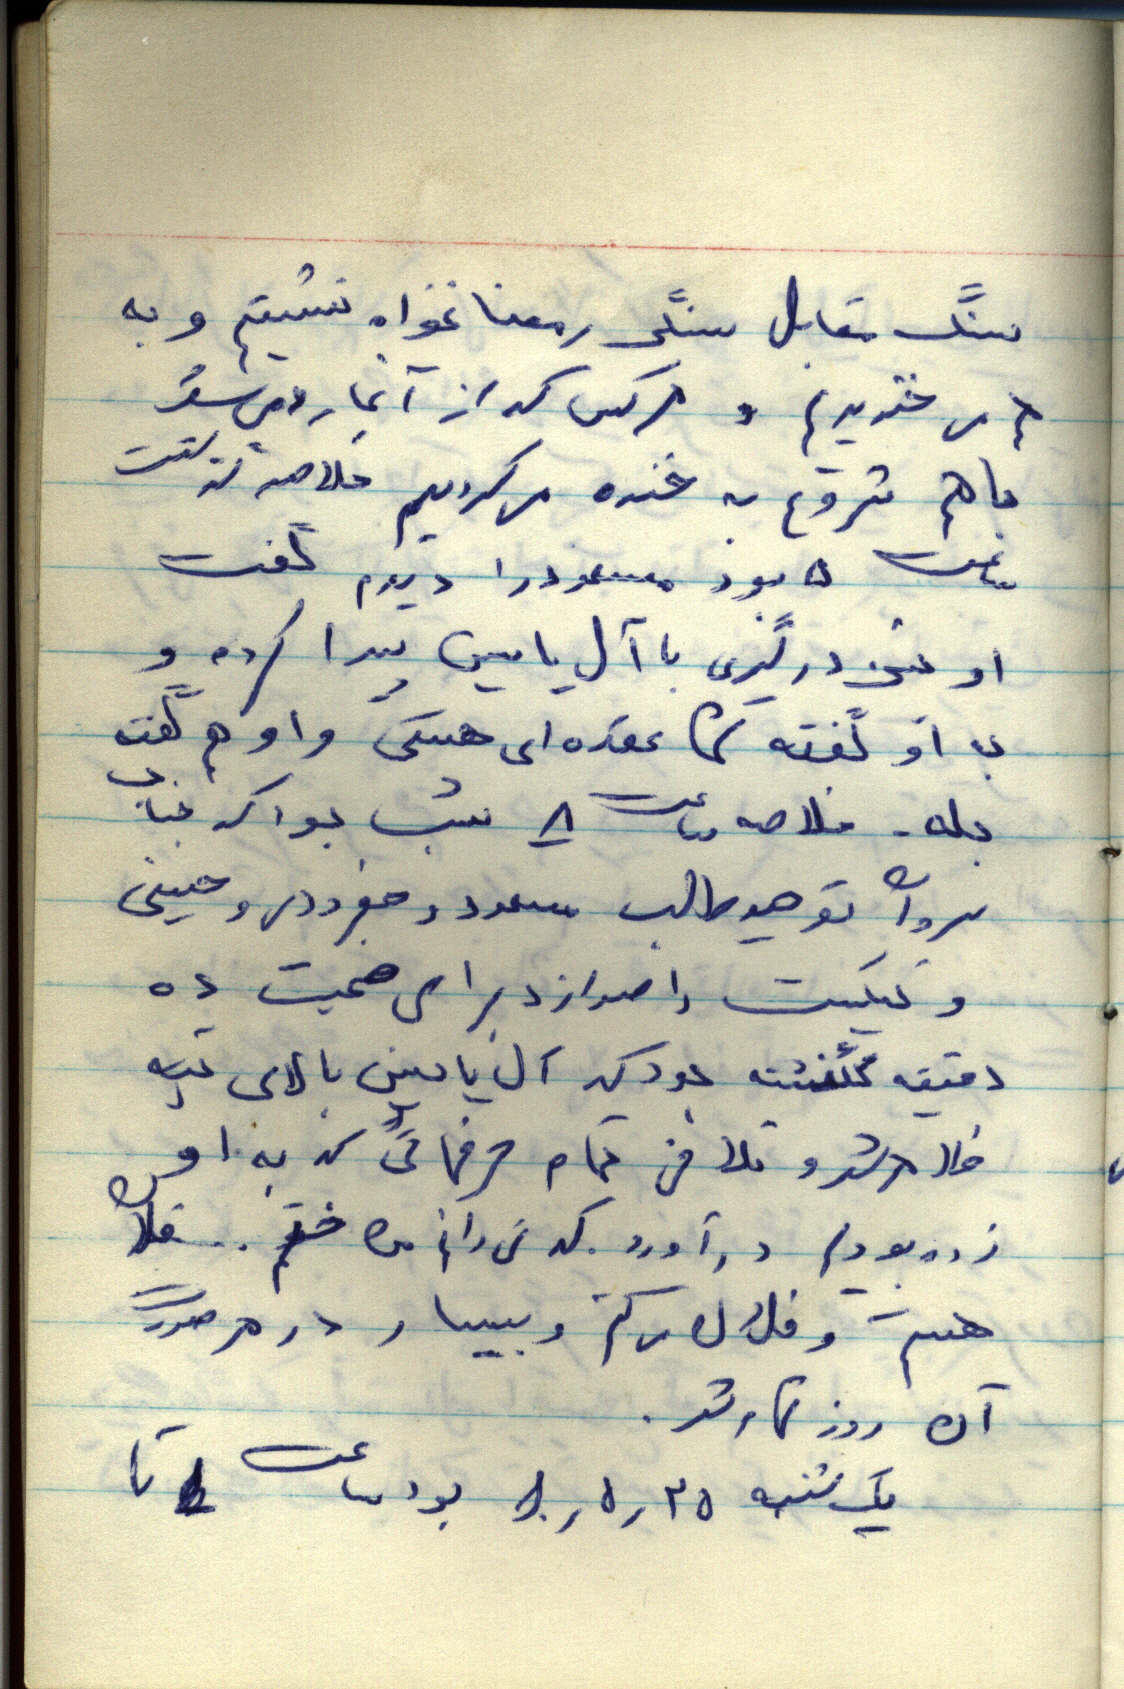 سنگ مقابل سنگی رمضانخواه نشستیم و به
هم می خندیدیم و هرکس که از آنجا رد می شد
ما هم شروع به خنده می کردیم خلاصه گذشت
ساعت ۵ بود مسعود را دیدم گفت
او عینی درگیری با آل یاسین پیدا کرده و
به او گفته شما عقده ای هستی و او هم گفت
بله. خلاصه ساعت ۸ شب بود که جناب
سروان توحید طالب مسعود و جعفر و و حسینی
و را صدا زد برای صحبت ده
دقیقه گذشته بود که آل یاسین بالای تپه
ظاهر شد و تلافی تمام حرفهائی که به او
زده بودیم درآورد. که من ختم .. فلان
هستم و فلان می کنم و بیسیار در هر صورت
آن روز تمام شد.
یک شنبه ۲۵ ر ۵ ر بود ساعت تا